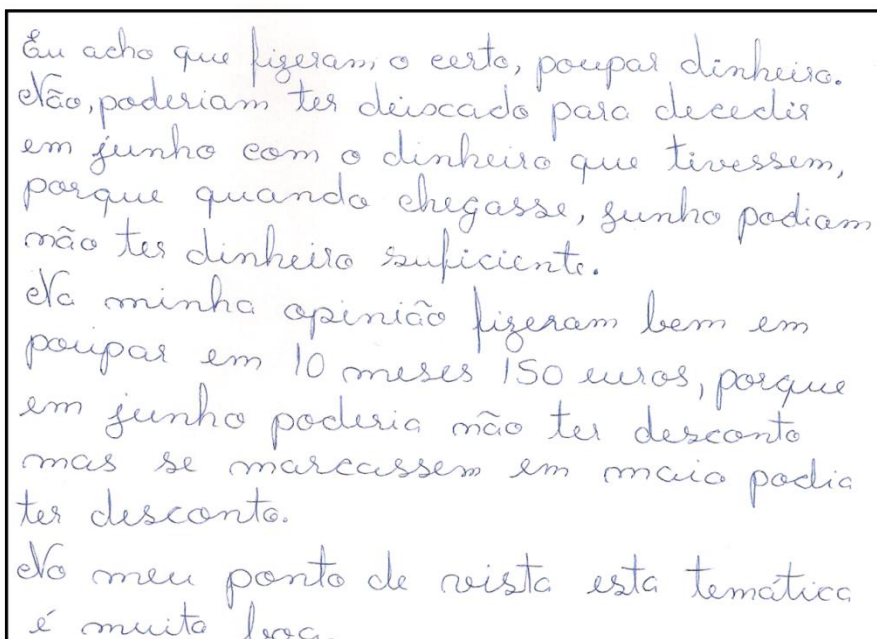 Eu acho que fizeram, o certo, poupar dinheiro.
Não, poderiam ter deixcado para decedir
em junho com o dinheiro que tivessem,
porque quando chegasse, junho podiam
não ter dinheiro suficiente.
Na minha opinião fizeram bem em
poupar em 10 meses 150 euros, porque
em junho poderia não ter desconto
mas se marcassem em maio podia
ter desconto.
No meu ponto de vista esta temática
é muito boa.